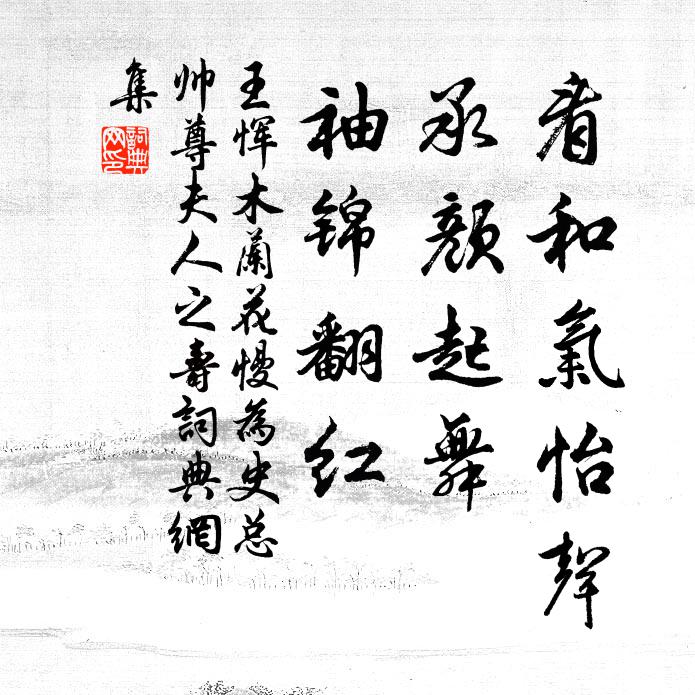 看和氣怡聲
承顏起舞
袖錦翻红
王惲木蘭花慢為史总
帅尊夫人之壽詞典網
集
詞典
网印